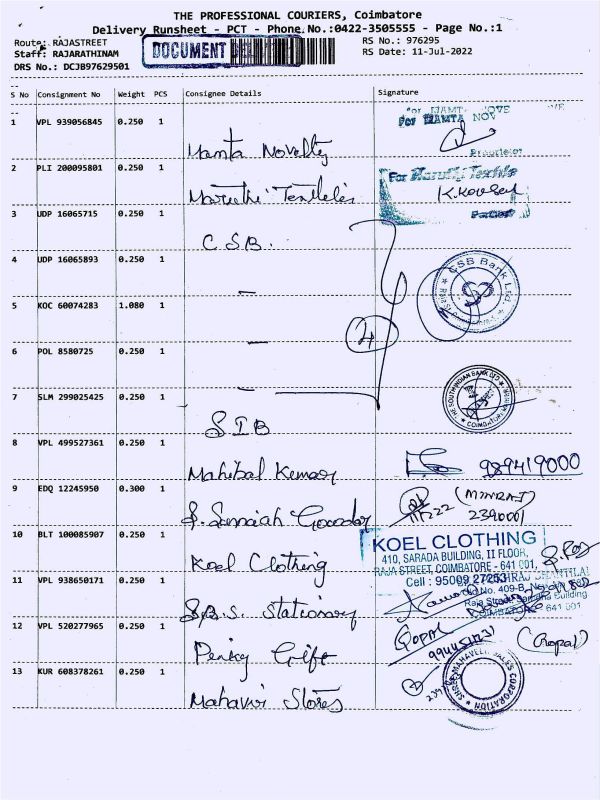 THE PROFESSIONAL COURIERS, Coimbatore
Delivery Runsheet - PCT - Phone No.:0422-3505555 - Page No.:1
Route: RAJASTREET
RS No.: 976295
Staff: RAJARATHINAM
DOCUMENT
RS Date: 11-Jul-2022
DRS No.: DCJB97629501
S No Consignment No Weight PCS Consignee Details Signature
1 VPL 939056845 0.250 1
Mamta Novelty
For MAMTA NOV
Proprietor
2 PLI 200095801 0.250 1
For Maruthi Textile
Partner
3 UDP 16065715 0.250 1
CSB.
4 UDP 16065893 0.250 1
CSB Bank Ltd.
5 KOC 60074283 1.080 1
4
6 POL 8580725 0.250 1
7 SLM 299025425 0.250 1
THE SOUTH INDIAN BANK LTD
COIMBATORE
SIB
8 VPL 499527361 0.250 1
9 EDQ 12245950 0.300 1
2390001
10 BLT 100085907 0.250 1
Koel Clothing
KOEL CLOTHING
410, SARADA BUILDING, II FLOOR,
RAJA STREET, COIMBATORE - 641 001,
11 VPL 938650171 0.250 1
S.B.S. Stationary
641 001
12 VPL 520277965 0.250 1
Gopal
(Gopal)
13 KUR 608378261 0.250 1
Mahavir Stores